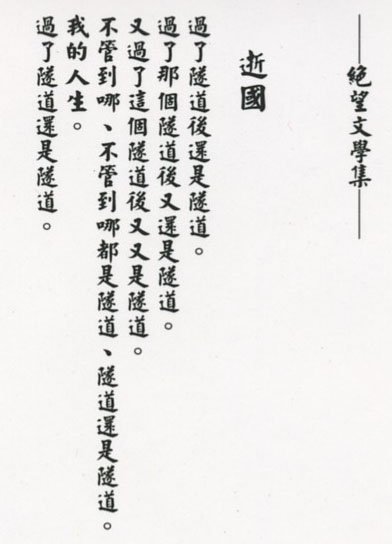 絕望文學集
逝國
過了隧道後還是隧道。
過了那個隧道後又還是隧道。
又過了這個隧道後又又是隧道。
不管到哪、不管到哪都是隧道、隧道還是隧道。
我的人生。
過了隧道還是隧道。